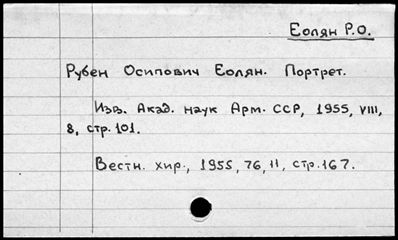 Еолян Р.О.
Рубен Осипович Еолян. Портрет.
Изв. Акад. наук Арм. ССР, 1955, VIII,
8, стр. 101.
Вестн. хир., 1955, 76, 11, стр. 167.